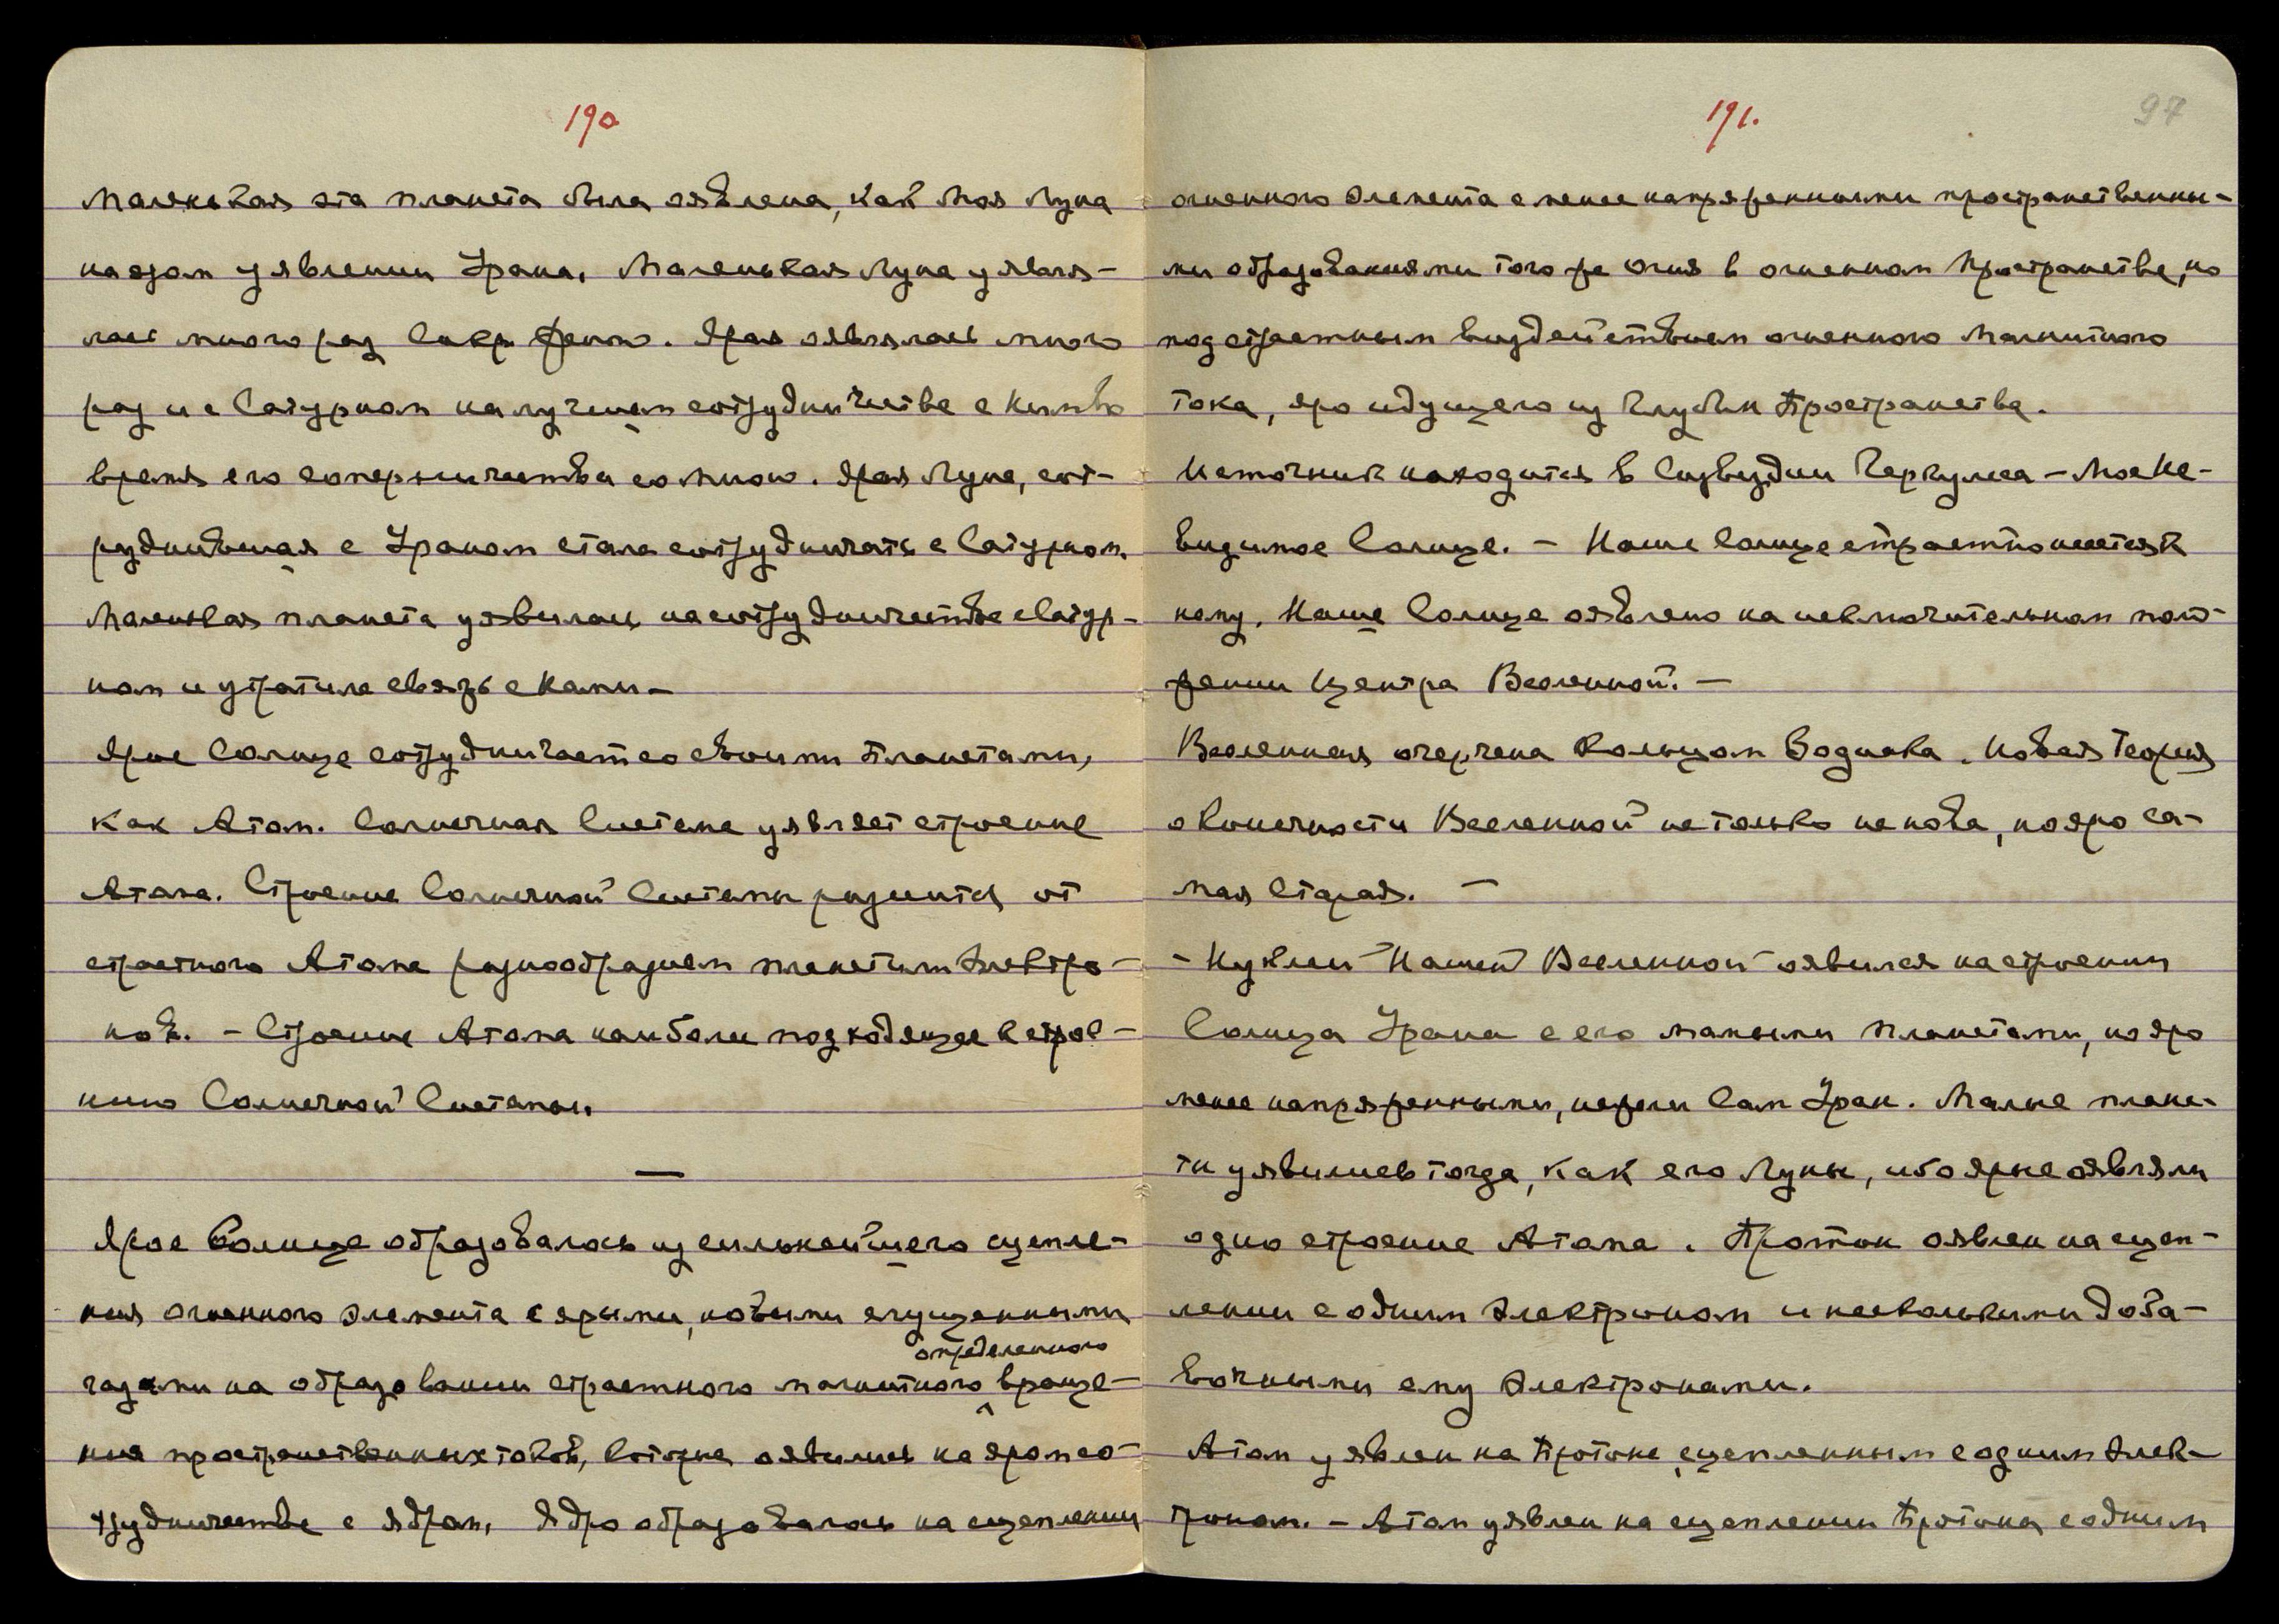 190
Маленькая эта планета была оявлена, как Моя Луна
на яром уявлении Урана. Маленькая Луна уявля-
лась много раз. Ярая оявлялась много
раз и с Сатурном на лучшем сотрудничестве с Ним во
время его соперничества со Мною. Ярая Луна, сот-
рудничавшая с Ураном стала сотрудничать с Сатурном.
Маленькая планета уявилась на сотрудничестве с Сатур-
ном и утратила связь с Нами –
Ярое Солнце сотрудничает со своими планетами,
как Атом. Солнечная Система уявляет строение
Атома. Строение Солнечной Системы разнится от
страстного Атома разнообразием планет или электро-
нов. – Строение Атома наиболее подходящее к строе-
нию Солнечной Системы
—
Ярое Солнце образовалось из сильнейшего сцепле-
ния огненного элемента с ярыми, новыми сгущенными
определенного
газами на образовании страстного магнитного враще-
ния пространственных токов, которые оявились на яром со-
трудничестве с ядром. Ядро образовалось на сцеплении
191.
97
огненного элемента с менее напряженными пространственны-
ми образованиями того же огня в огненном пространстве, но
под страстным воздействием огненного магнитного
тока, яро идущего из глубин Пространства.
Источник находится в Созвездии Геркулеса – Мое Не-
видимое Солнце. – Наше Солнце страстно несется к
нему. Наше Солнце оявлено на исключительном прит-
жении Центра Вселенной. –
Вселенная очерчена Кольцом Зодиака. Новая Теория
о конечности Вселенной не только не нова, но яро са-
мая старая. –
– Нуклей Нашей Вселенной оявился на строении
Солнца Урана с его малыми планетами, но яро
менее напряженными, нежели сам Уран. Малые плане-
ты уявились тогда, как его Луны, ибо ярые оявляли
одно строение Атома. Протон оявлен на сцеп-
лении с одним электроном и несколькими доба-
вочными ему электронами.
Атом уявлен на Протоне, сцепленным с одним элек-
троном. – Атом уявлен на сцеплении Протона с одним